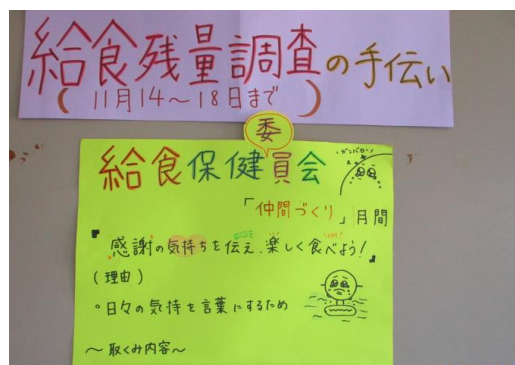 給食残量調査の手伝い
(11月14～18日まで)
給食保健委員会
ガンバロー!
「仲間づくり」月間
『感謝の気持ちを伝え、楽しく食べよう!』
(理由)
°日々の気持を言葉にするため
～取くみ内容～